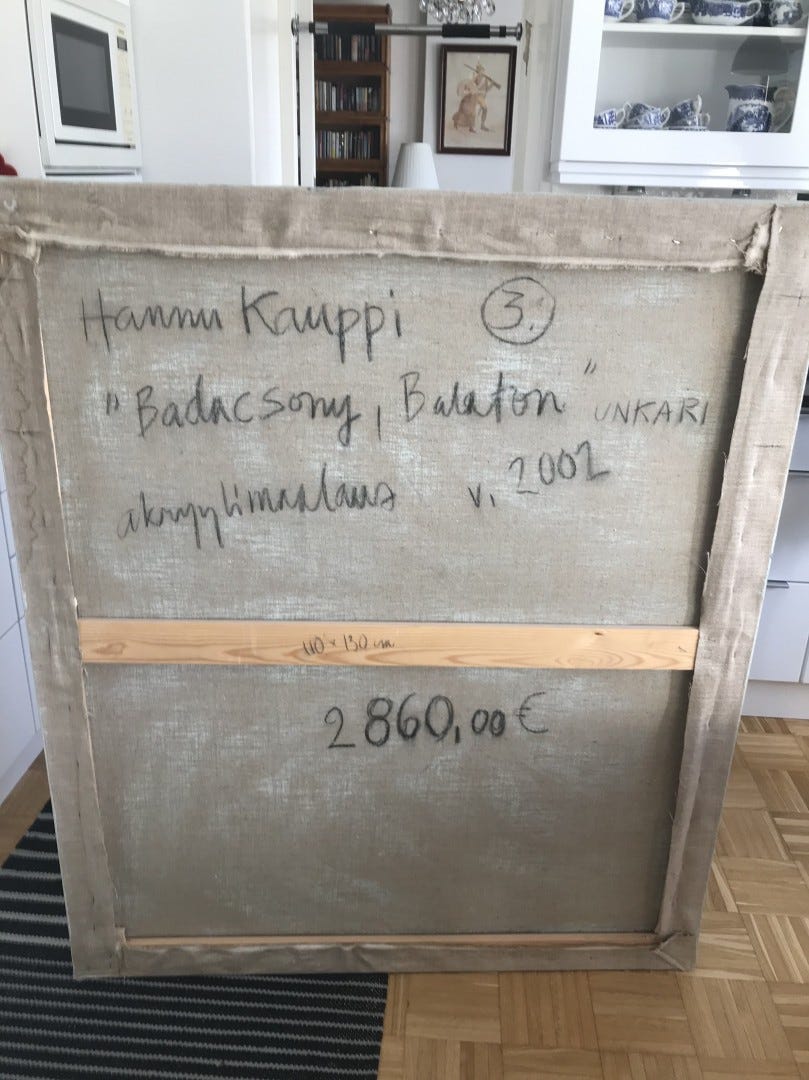 Hannu Kauppi 3.
"Badacsony, Balaton" UNKARI
akryylimaalaus v. 2002
110 x 130 cm
2860,00 €